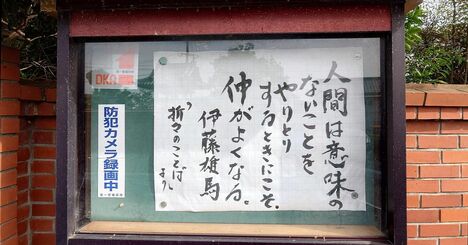 人間は意味の
ないことを
やりとり
するときにこそ、
仲がよくなる。
伊藤雄馬
「折々のことば」
より
防犯カメラ録画中